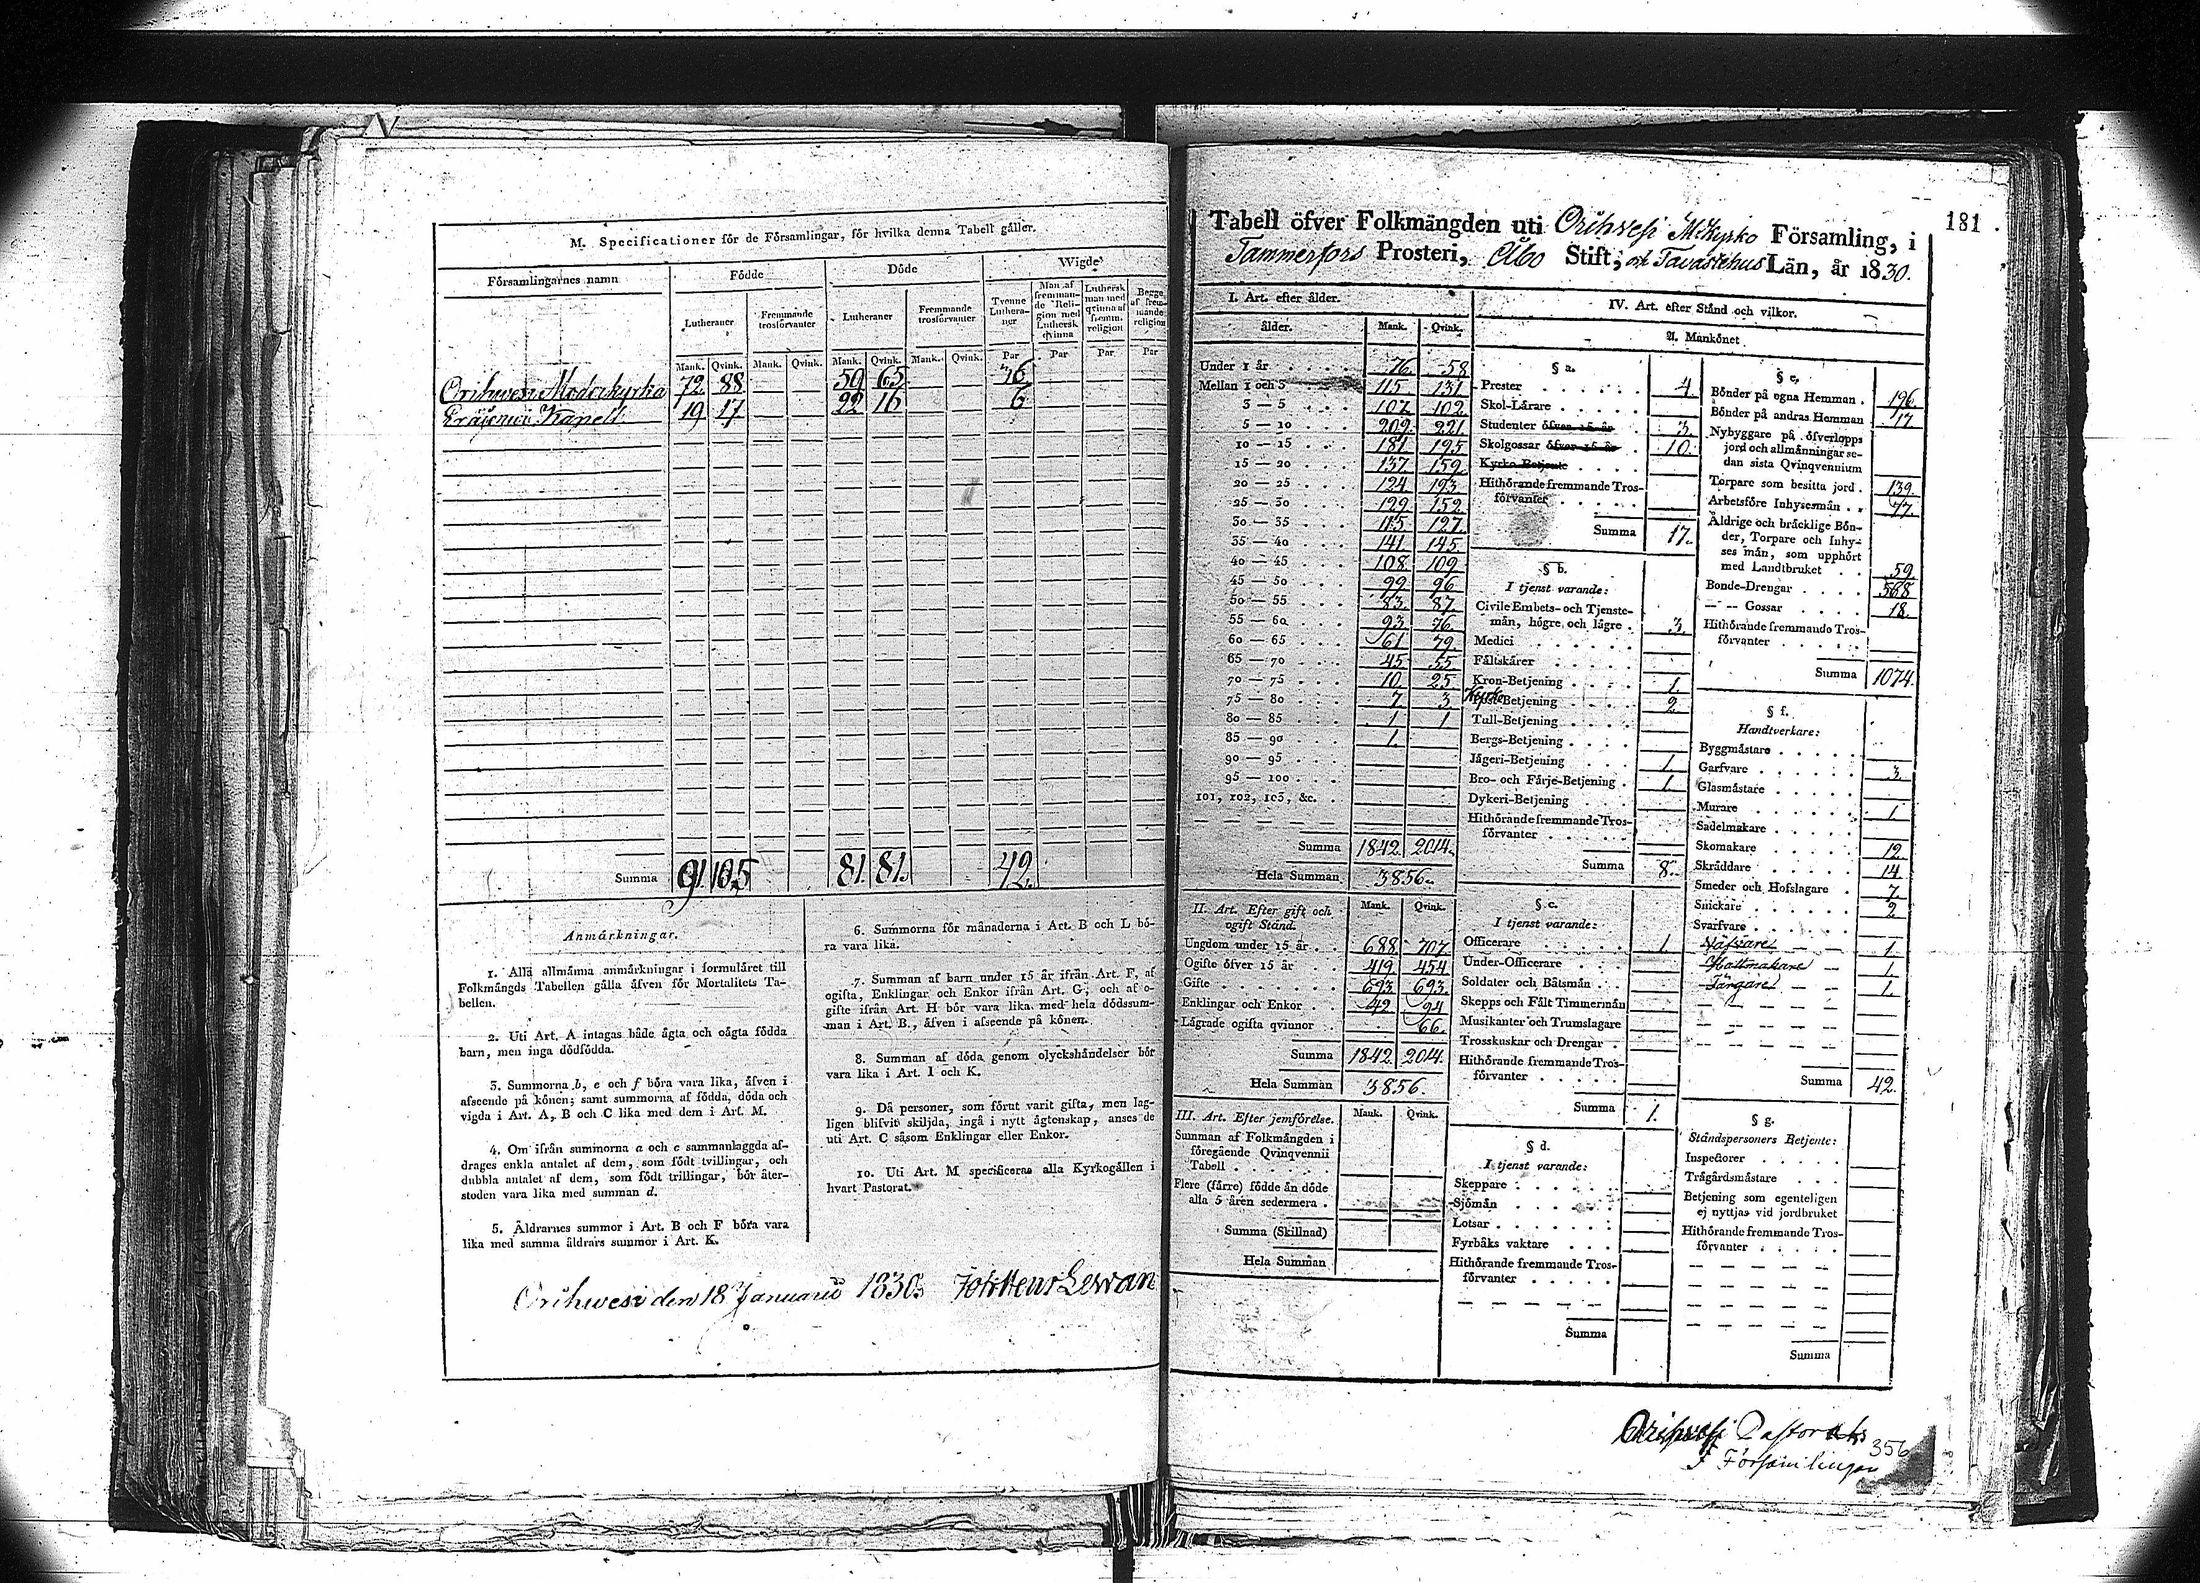 M. Specificationer för de Församlingar, för hvilka denna Tabell gäller.
Församlingarnes namn
Födde
Döde
Wigde
Lutheraner
Fremmande trosförvanter
Lutheraner
Fremmande trosförvanter
Tvenne Lutheraner
Man af fremmande Religion med Luthersk qvinna
Luthersk man med qvinna af fremm. religion
Begge af fremmande religion
Mank. Qvink. Mank. Qvink. Mank. Qvink. Mank. Qvink. Par Par Par Par
Orihwesi Moderkyrka 72 88 59 65 36
Eräjerwi Kapell 19 17 22 16 6
Summa 91 105 81. 81. 42.
Anmärkningar.
1. Alla allmänna anmärkningar i formuläret till
Folkmängds Tabellen gälla äfven för Mortalitets Ta-
bellen.
2. Uti Art. A intagas både ägta och oägta födda
barn, men inga dödfödda.
3. Summorna b, e och f böra vara lika, äfven i
afseende på könen; samt summorna af födda, döda och
vigda i Art. A, B och C lika med dem i Art. M.
4. Om ifrån summorna a och c sammanlaggda af-
drages enkla antalet af dem, som födt tvillingar, och
dubbla antalet af dem, som födt trillingar, bör åter-
stoden vara lika med summan d.
5. Åldrarnes summor i Art. B och F böra vara
lika med samma åldrars summor i Art. K.
6. Summorna för månaderna i Art. B och L bö-
ra vara lika.
7. Summan af barn under 15 år ifrån Art. F, af
ogifta, Enklingar och Enkor ifrån Art. G, och af o-
gifte ifrån Art. H bör vara lika med hela dödssum-
man i Art. B., äfven i afseende på könen.
8. Summan af döda genom olyckshändelser bör
vara lika i Art. I och K.
9. Då personer, som förut varit gifta, men lag-
ligen blifvit skiljda, ingå i nytt ägtenskap, anses de
uti Art. C såsom Enklingar eller Enkor.
10. Uti Art. M specificeras alla Kyrkogällen i
hvart Pastorat.
Orihwesi den 18 Januarii 1830
181
Tabell öfver Folkmängden uti Orihvesi M:Kyrko Församling, i
Tammerfors Prosteri, Åbo Stift, och Tavastehus Län, år 1830.
I. Art. efter ålder.
ålder. Mank. Qvink.
Under 1 år 76 58
Mellan 1 och 3 115 131
3 — 5 107 102
5 — 10 209 221
10 — 15 181 195
15 — 20 137 159
20 — 25 124 193
25 — 30 129 152
30 — 35 115 127
35 — 40 141 145
40 — 45 108 109
45 — 50 99 96
50 — 55 83 87
55 — 60 93 76
60 — 65 61 79
65 — 70 45 55
70 — 75 10 25
75 — 80 7 3
80 — 85 1 1
85 — 90 1
90 — 95
95 — 100
101, 102, 103, &c.
Summa 1842 2014
Hela Summan 3856
II. Art. Efter gift och ogift Stånd. Mank. Qvink.
Ungdom under 15 år 688 707
Ogifte öfver 15 år 419 454
Gifte 693 693
Enklingar och Enkor 42 94
Lägrade ogifta qvinnor 66
Summa 1842 2014
Hela Summan 3856
III. Art. Efter jemförelse. Mank. Qvink.
Summan af Folkmängden i
föregående Qvinqvennii
Tabell
Flere (färre) födde än döde
alla 5 åren sedermera
Summa (Skillnad)
Hela Summan
IV. Art. efter Stånd och vilkor.
A. Mankönet
§ a.
Prester 4
Skol-Lärare
Studenter öfver 15 år 3
Skolgossar öfver 15 år 10
Kyrko-Betjente
Hithörande fremmande Tros-
förvanter
Summa 17
§ b.
I tjenst varande:
Civile Embets- och Tjenste-
män, högre och lägre 3
Medici
Fältskärer
Kron-Betjening 1
Kyrko Post-Betjening 2
Tull-Betjening
Bergs-Betjening
Jägeri-Betjening 1
Bro- och Färje-Betjening 1
Dykeri-Betjening
Hithörande fremmande Tros-
förvanter
Summa 8
§ c.
I tjenst varande:
Officerare 1
Under-Officerare
Soldater och Båtsmän
Skepps och Fält Timmermän
Musikanter och Trumslagare
Trosskuskar och Drengar
Hithörande fremmande Tros-
förvanter
Summa 1.
§ d.
I tjenst varande:
Skeppare
Sjömän
Lotsar
Fyrbåks vaktare
Hithörande fremmande Tros-
förvanter
Summa
§ e.
Bönder på egna Hemman 196
Bönder på andras Hemman 17
Nybyggare på öfverlopps
jord och allmänningar se-
dan sista Qvinqvennium
Torpare som besitta jord 139
Arbetsföre Inhysesmän 77
Åldrige och bräcklige Bön-
der, Torpare och Inhy-
ses män, som upphört
med Landtbruket 59
Bonde-Drengar 568
— — Gossar 18
Hithörande fremmande Tros-
förvanter
Summa 1074
§ f.
Handtverkare:
Byggmästare
Garfvare 3
Glasmästare
Murare 1
Sadelmakare
Skomakare 12
Skräddare 14
Smeder och Hofslagare 7
Snickare 2
Svarfvare
Väfvare 1
Hattmakare 1
Färgare 1
Summa 42
§ g.
Ståndspersoners Betjente:
Inspektorer
Trägårdsmästare
Betjening som egenteligen
ej nyttjas vid jordbruket
Hithörande fremmande Tros-
förvanter
Summa
Orihvesi Pastorats
Församlingar
356